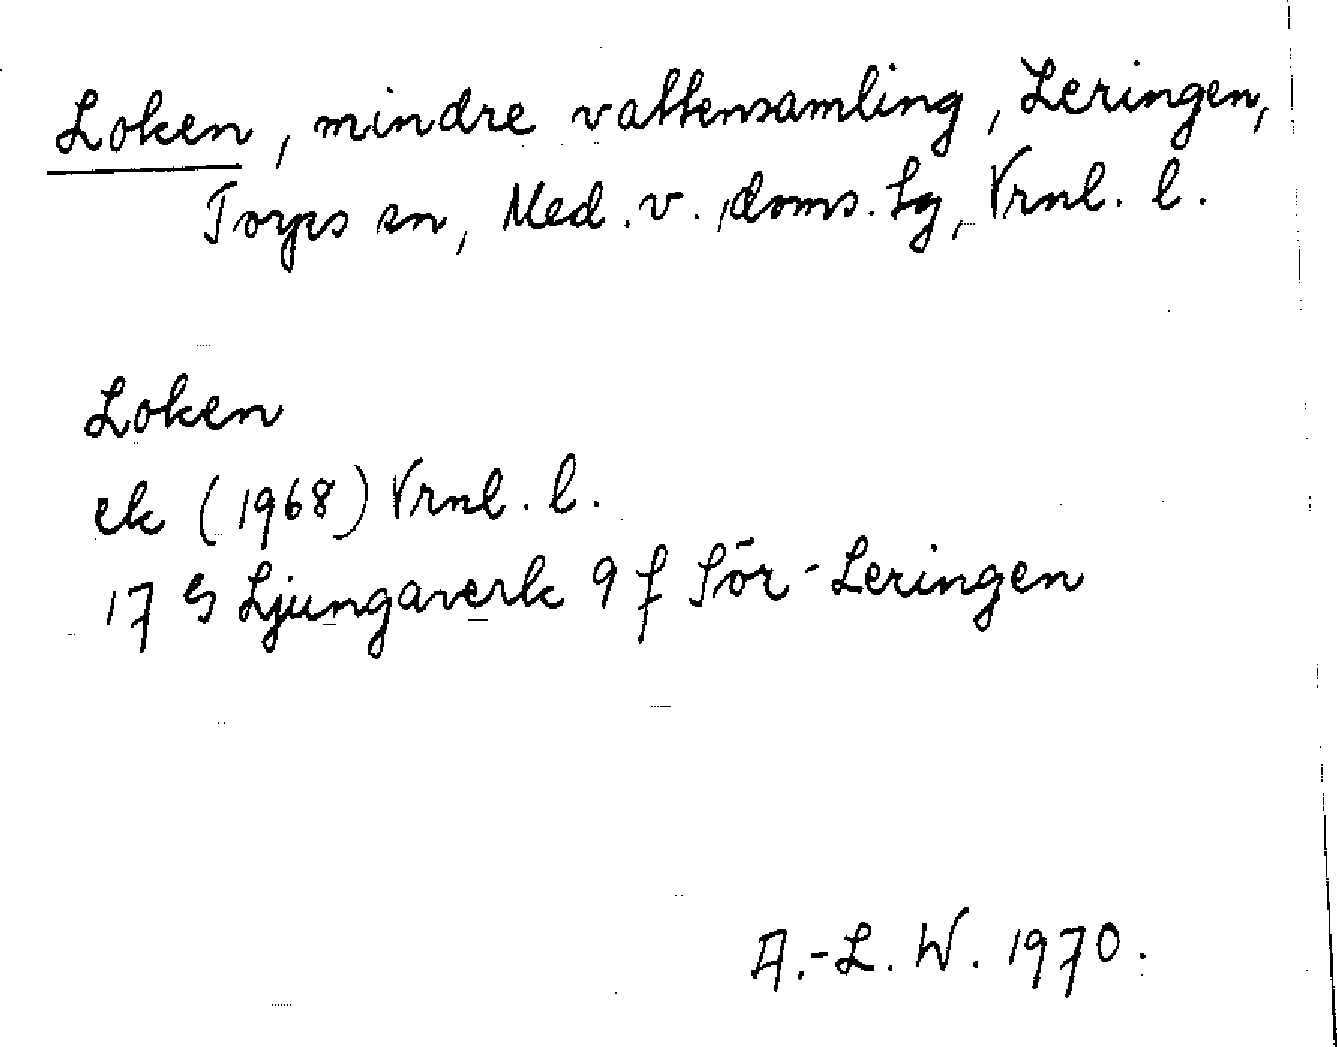 Loken, mindre vattensamling, Leringen,
Torps sn, Med. v. doms. Lg, Vrnl. l.
Loken
ek (1968) Vrnl. l.
17 G Ljungaverk 9 f Sör-Leringen
A.-L. W. 1970.